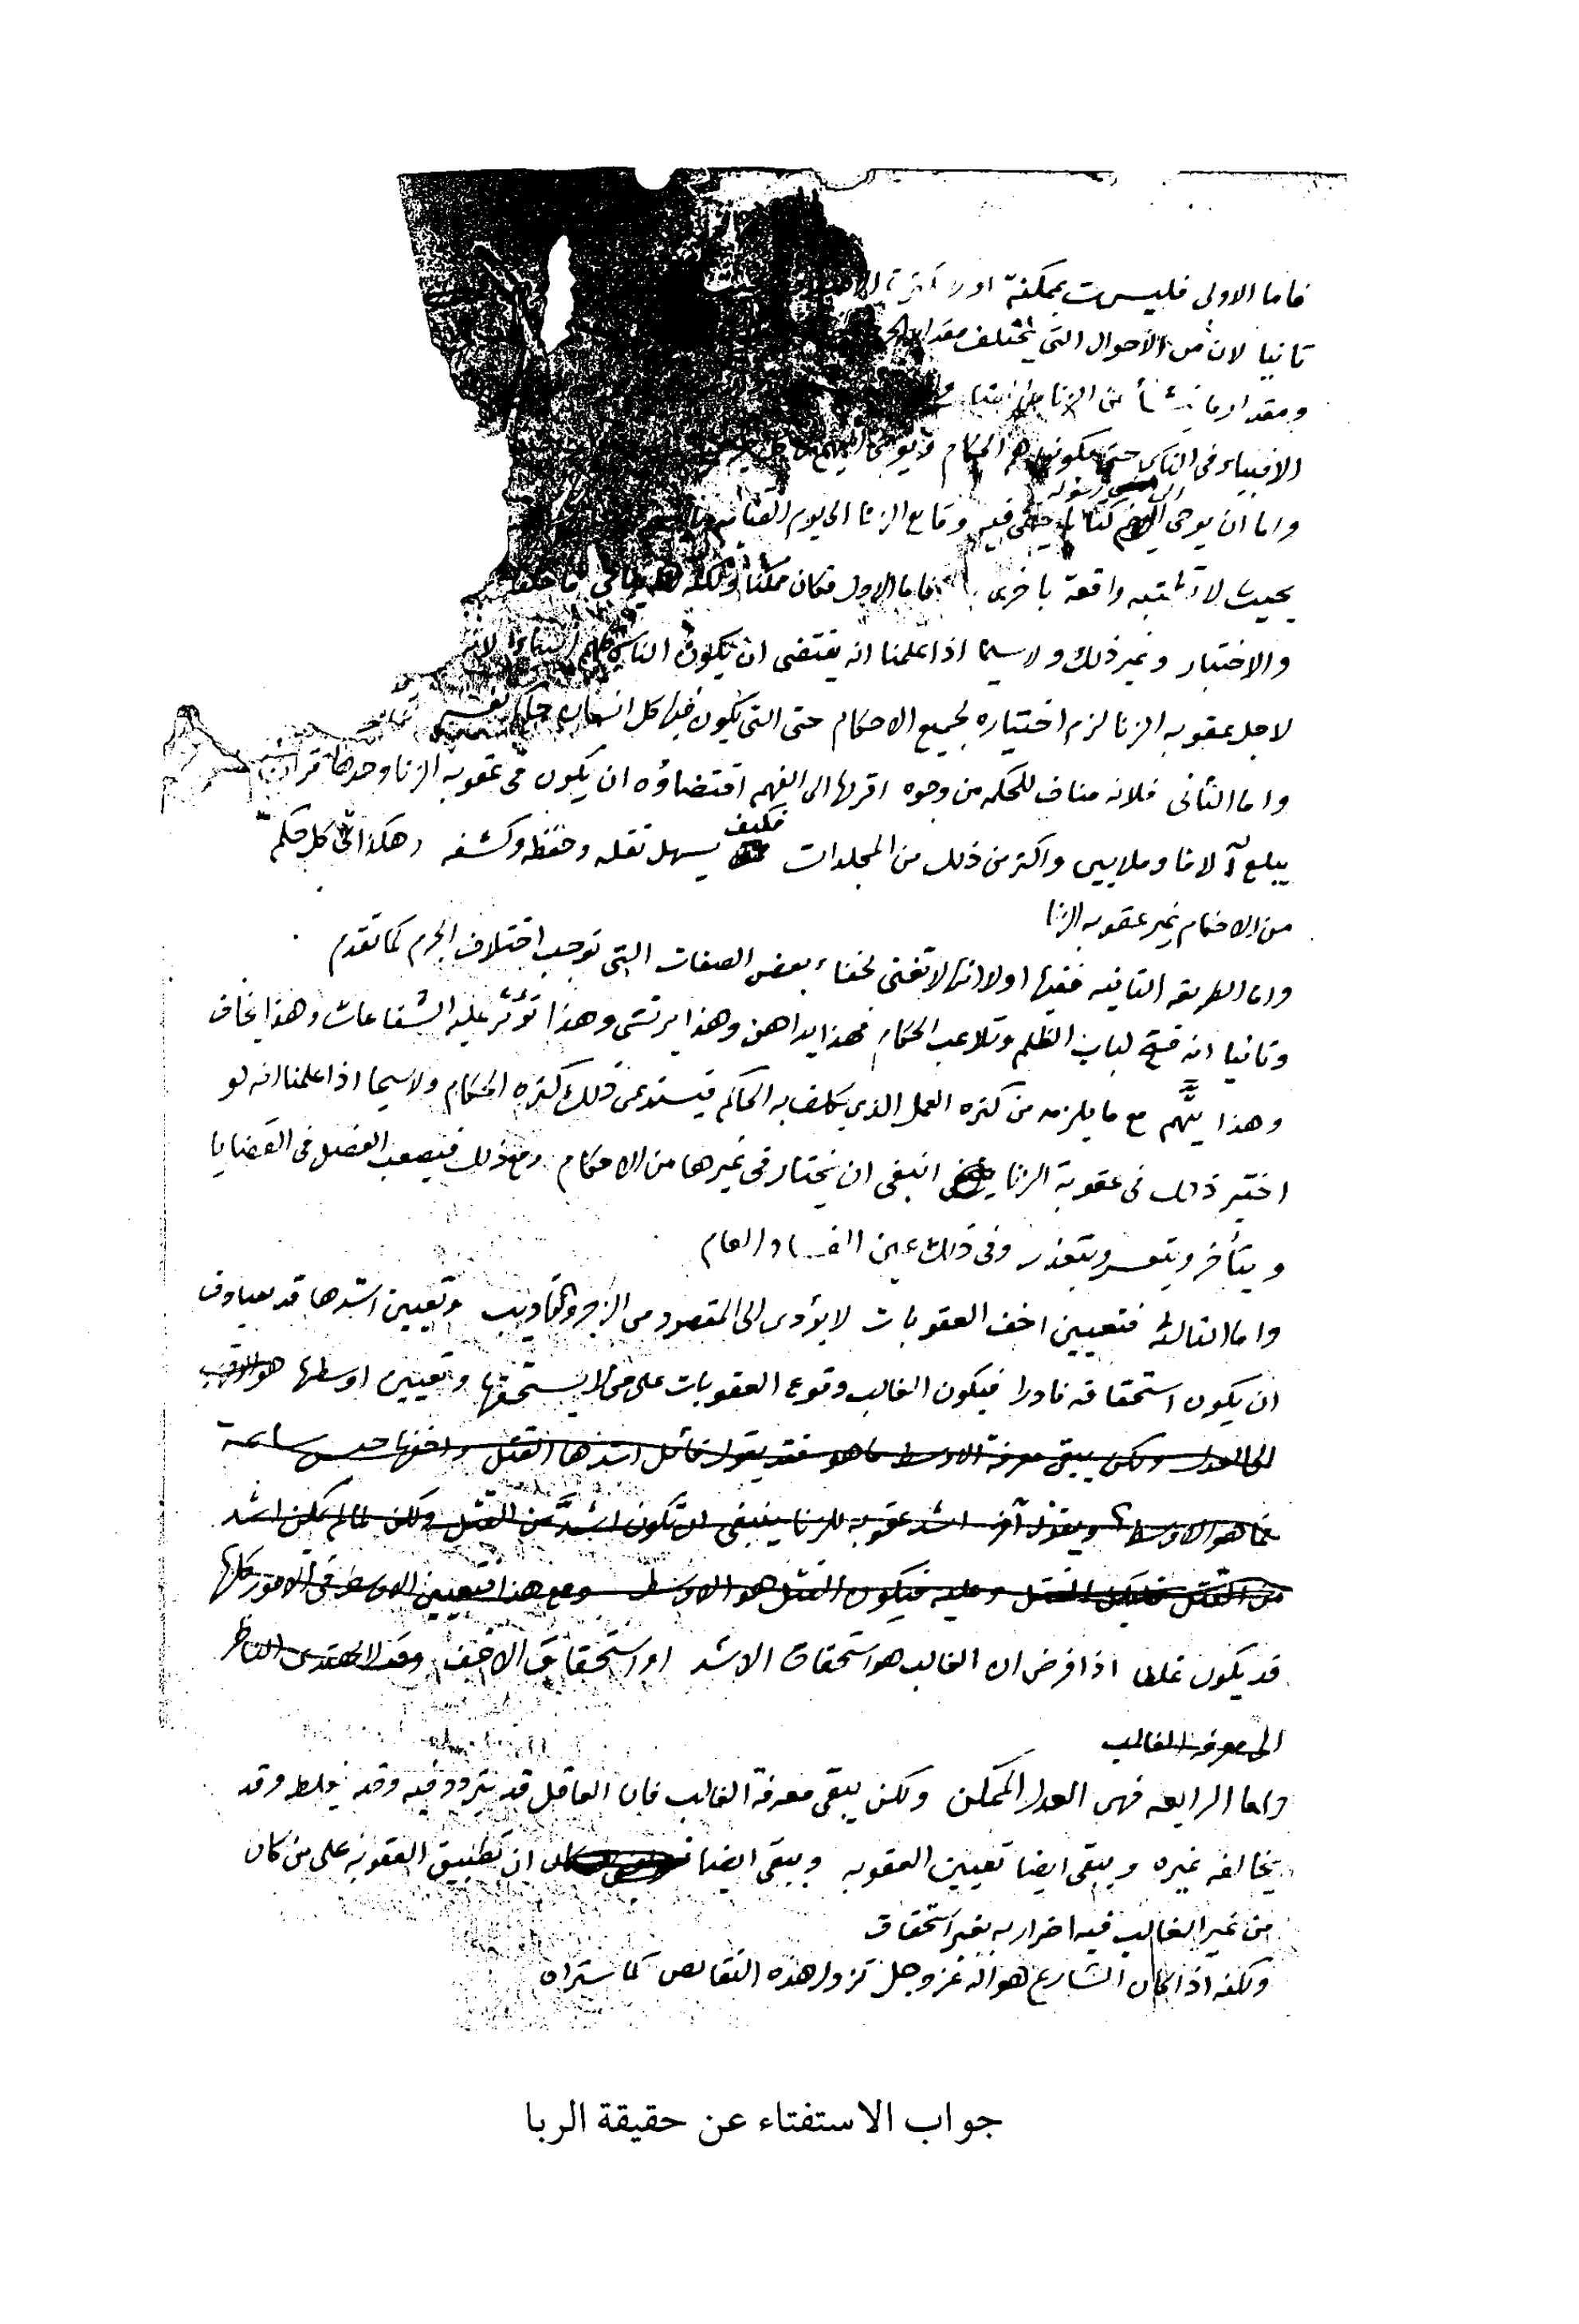 فاما الاولى فليست بممكنة اولا
ثانيا لان من الاحوال التي يختلف مقدار
ومقدار ما ينشأ عن الزنا من
الانبياء في الناس حتى يكونوا هم الحكام لا يوحى اليهم
الى رسوله
واما ان يوحي كتابا فيه وقايع الزنا الى يوم القيامة
بحيث لا تشتبه واقعة باخرى فاما الاول فكان ممكنا ولكنه
والاختبار وغير ذلك ولا سيما اذا علمنا انه يقتضي ان يكون الناس كلهم انبياء لانه
لاجل عقوبه الزنا لزم اختياره لجميع الاحكام حتى التي يكون فيها كل انسان نفسه
واما الثاني فلانه مناف للحكمه من وجوه اقربها الى الفهم اقتضاؤه ان يكون في عقوبه الزنا وحدها قرآن
فكيف
يبلغ آلافا وملايين واكثر من ذلك من المجلدات يسهل نقله وحفظه وكشفه وهكذا في كل حكم
من الاحكام غير عقوبه الزنا
واما الطريقه الثانيه ففيها اولا انها لا تغني لخفاء بعض الصفات التي توجب اختلاف الجرم كما تقدم
وثانيا انه فتح لباب الظلم وتلاعب الحكام فهذا يداهن وهذا يرتشي وهذا تؤثر عليه الشفاعات وهذا يخاف
وهذا يتهم مع ما يلزمه من كثره العمل الذي يكلف به الحاكم فيستدعي ذلك كثره الحكام ولا سيما اذا علمنا انه لو
اختير ذلك في عقوبة الزنا انبغى ان يختار في غيرها من الاحكام ومع ذلك فيصعب الفصل في القضايا
ويتأخر ويتعسر ويتعذر وفي ذلك عين الفساد العام
واما الثالثه فتعيين اخف العقوبات لا يؤدى الى المقصود من الزجر والتأديب وتعيين اشدها قد يصادف
ان يكون استحقاقه نادرا فيكون الغالب وقوع العقوبات على من لا يستحقها وتعيين اوسطها هو الاقرب
الى العدل ولكن يبقى معرفة الاوسط ما هو فقد يقول قائل اشدها القتل واخفها حبس ساعة
فما هو الاوسط؟ ويقول آخر اشد عقوبه للزنا ينبغي ان تكون اشد من القتل ولكن لما لم يكن اشد
من القتل فليكن القتل وعليه فيكون القتل هو الاوسط ومع هذا فتعيين الاوسط في الامور كلها
قد يكون غلطا اذا فرض ان الغالب هو استحقاق الاشد او استحقاق الاخف وقد لا يهتدي الناظر
الى معرفة الغالب
واما الرابعه فهي العدل الممكن ولكن يبقى معرفة الغالب فان العاقل قد يتردد فيه وقد يغلط وقد
يخالفه غيره ويبقى ايضا تعيين العقوبه ويبقى ايضا ان تطبيق العقوبه على من كان
من غير الغالب فيه اضرار به بغير استحقاق
ولكنه اذا كان الشارع هو الله عز وجل تزول هذه النقائص كما ستراه
جواب الاستفتاء عن حقيقة الربا